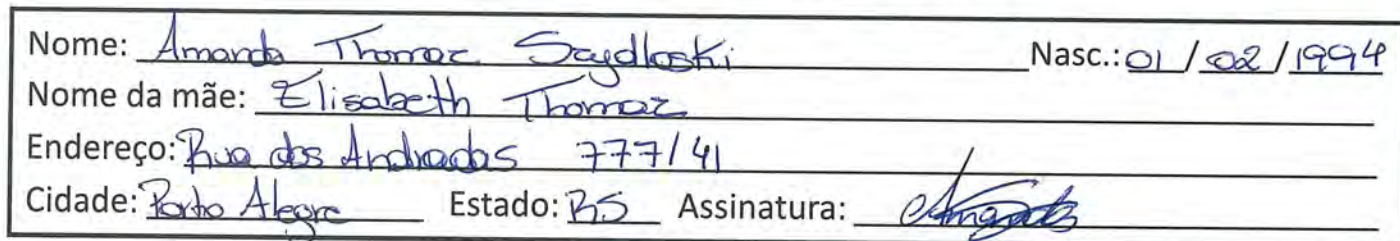 Nome: Amanda Thomaz Saydloski Nasc.: 01/02/1994
Nome da mãe: Elisabeth Thomaz
Endereço: Rua dos Andradas 777/41
Cidade: Porto Alegre Estado: RS Assinatura: Amanda